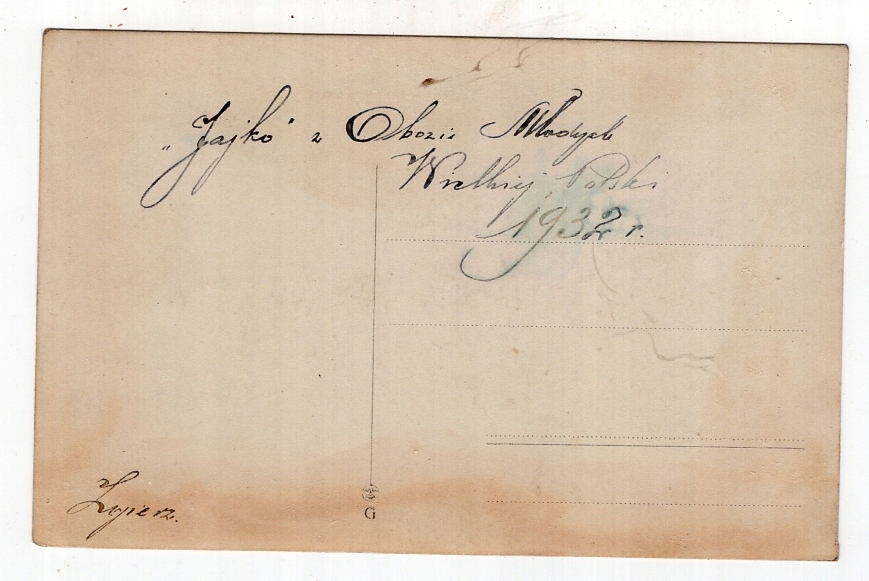 „Jajko” z Obozu Młodych
Wielkiej Polski
1932 r.
Zgierz.
G